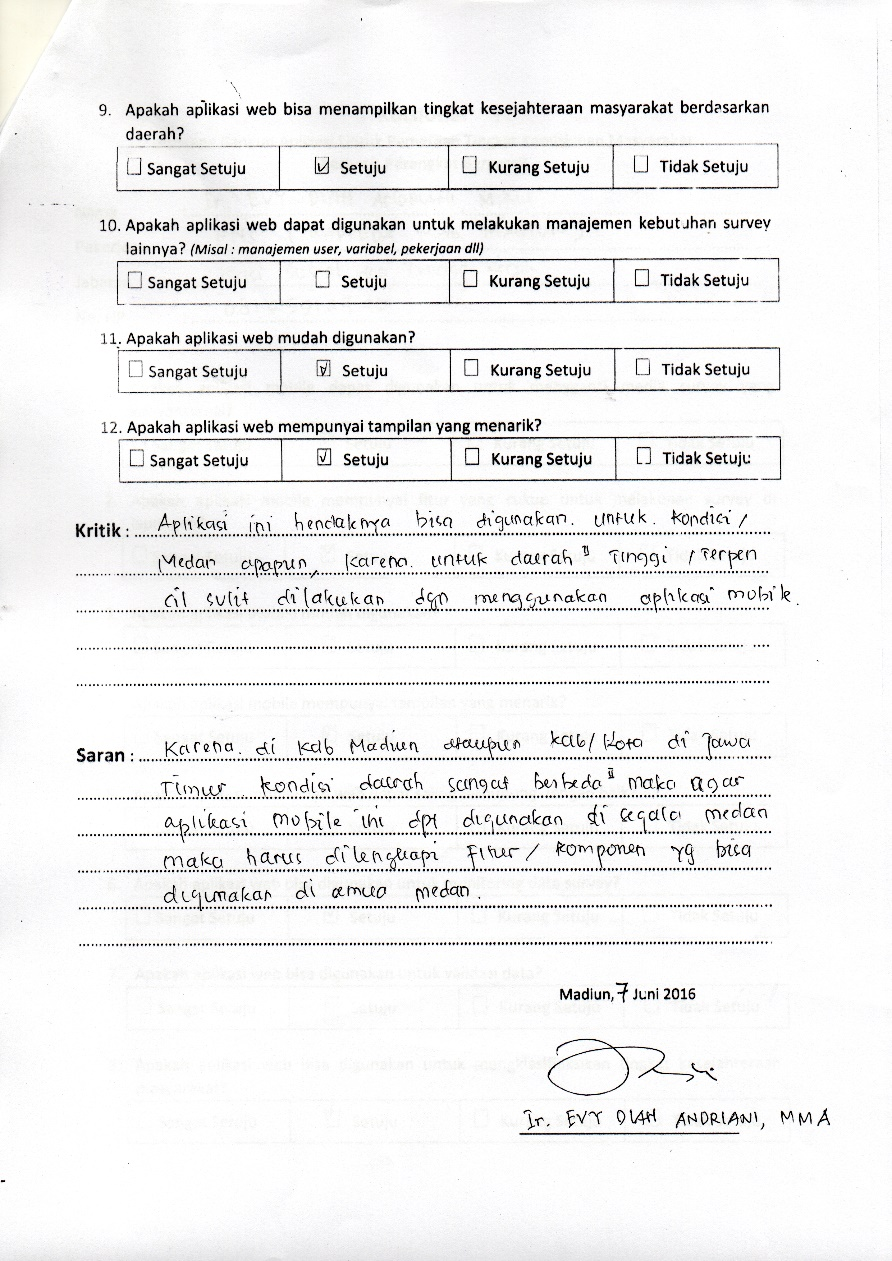 9. Apakah aplikasi web bisa menampilkan tingkat kesejahteraan masyarakat berdasarkan
daerah?
☐ Sangat Setuju ☑ Setuju ☐ Kurang Setuju ☐ Tidak Setuju
10. Apakah aplikasi web dapat digunakan untuk melakukan manajemen kebutuhan survey
lainnya? (Misal : manajemen user, variabel, pekerjaan dll)
☐ Sangat Setuju ☐ Setuju ☐ Kurang Setuju ☐ Tidak Setuju
11. Apakah aplikasi web mudah digunakan?
☐ Sangat Setuju ☑ Setuju ☐ Kurang Setuju ☐ Tidak Setuju
12. Apakah aplikasi web mempunyai tampilan yang menarik?
☐ Sangat Setuju ☑ Setuju ☐ Kurang Setuju ☐ Tidak Setuju
Kritik : Aplikasi ini hendaknya bisa digunakan. untuk. kondisi /
Medan apapun, karena. untuk daerah II Tinggi / Terpen
cil sulit dilakukan dgn menggunakan aplikasi mobile.
Saran : Karena. di kab Madiun ataupun kab/ Kota di Jawa
Timur kondisi daerah sangat berbeda II maka agar
aplikasi mobile ini dpt digunakan di segala medan
maka harus dilengkapi fitur / komponen yg bisa
digunakan di semua medan.
Madiun, 7 Juni 2016
Ir. EVY DIAH ANDRIANI, MMA